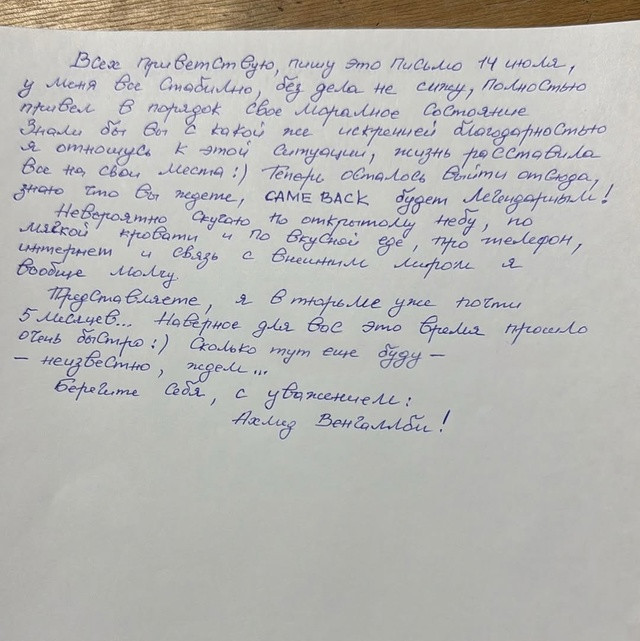 Всех приветствую, пишу это письмо 14 июля,
у меня все стабильно, без дела не сижу, полностью
привел в порядок свое моралное состояние
Знали бы вы с какой же искренней благодарностью
я отношусь к этой ситуации, жизнь расставила
все на свои места:) Теперь осталось выйти отсюда,
знаю что вы ждете, CAME BACK будет легендарным!
Невероятно скучаю по открытому небу, по
мягкой кровати и по вкусной еде, про телефон,
интернет и связь с внешним миром я
вообще молчу
Представляете, я в тюрьме уже почти
5 месяцев... Наверное для вас это время прошло
очень быстро:) Сколько тут еще буду –
– неизвестно, ждем...
Берегите себя, с уважением:
Ахмед Венгаллби!